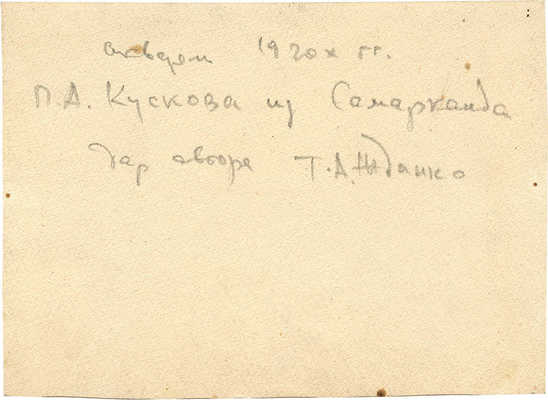 акварели 1920х гг.
П.А. Кускова из Самарканда
дар автора Т.А. Жданко